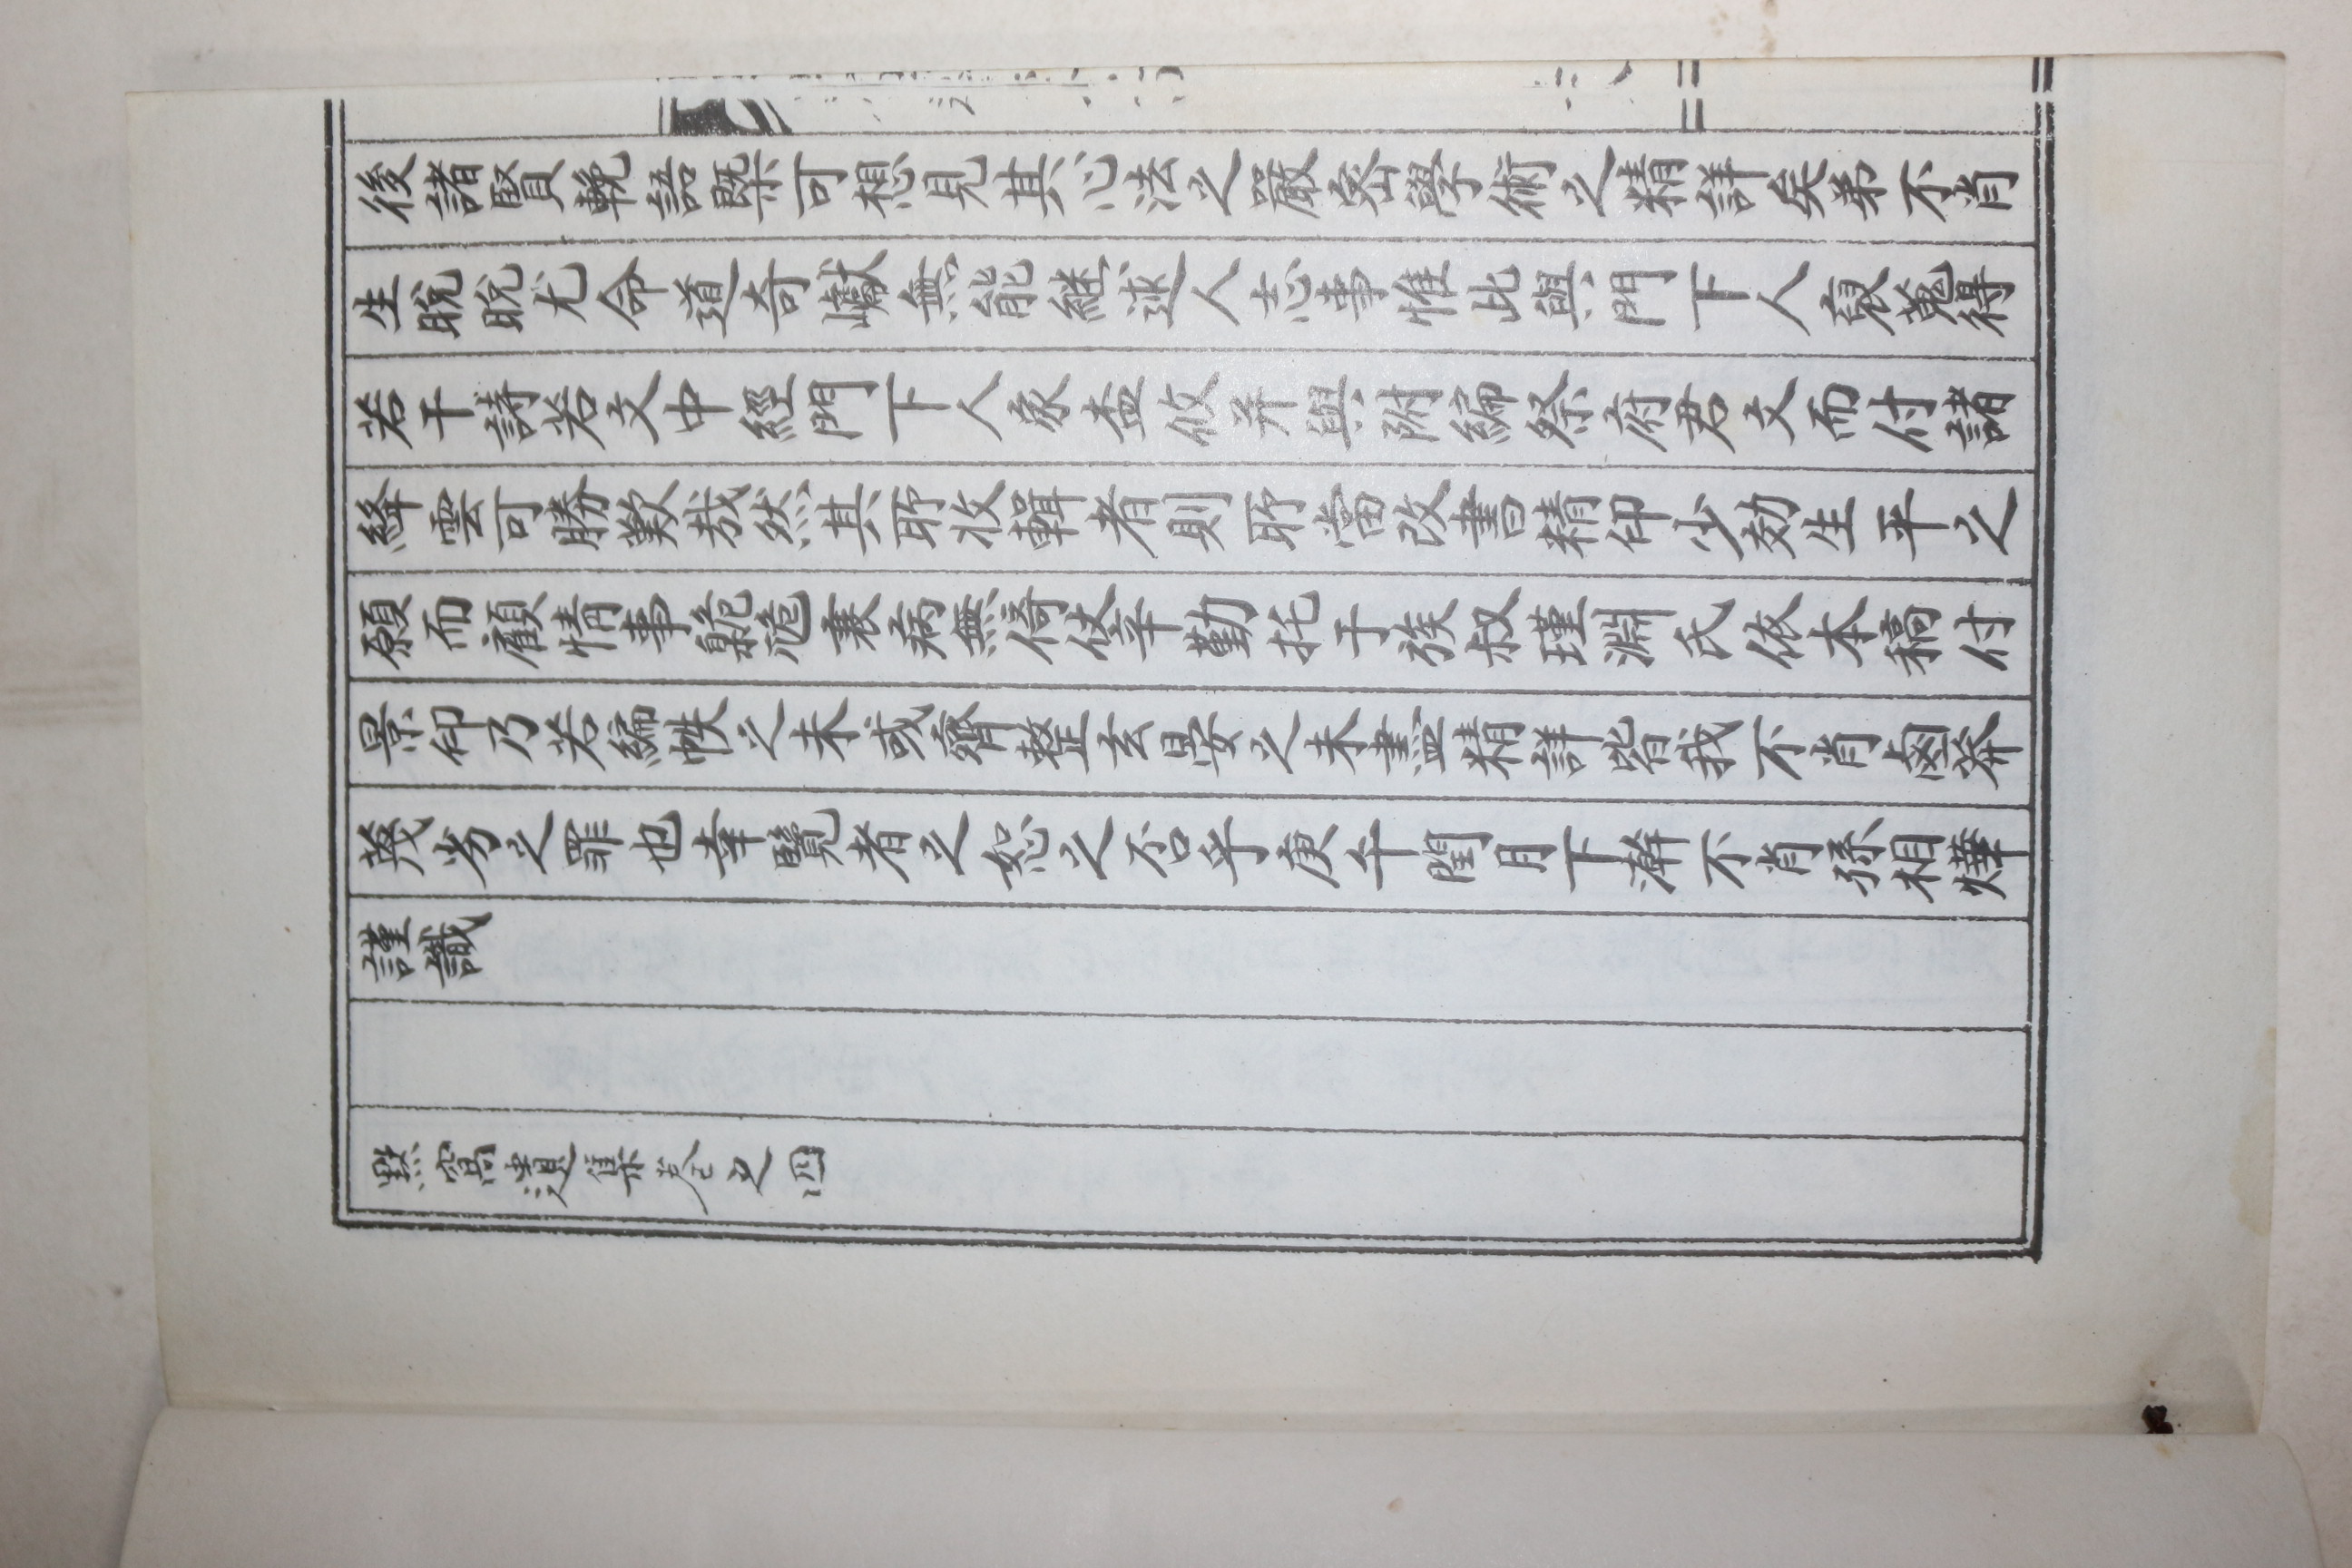 後諸賢輓語槩可想見其心法之嚴密學術之精詳矣弟不肖
生晩晩尤命道奇巇無能継述人志事惟比與門下人裒蒐得
若干詩若文中經門下人家盍攸并與附編祭府君文而付諸
絳雲可勝歎㦲然其所收輯者則所當改書精印少効生平之
願而顧情事臲卼衰病無倚仗辛勤托于族叔瑾淵氏依本稿付
景印乃若編帙之未或齊整玄晏之未盡精詳皆我不肖鹵莽
蔑劣之罪也幸覽者之恕之否乎庚午閏月下澣不肖孫相燁
謹識
默窩遺集卷之四